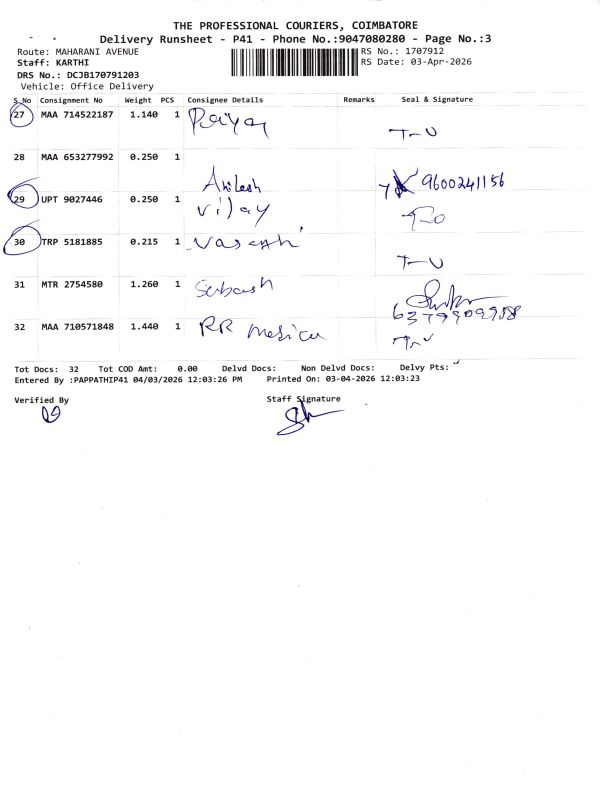 THE PROFESSIONAL COURIERS, COIMBATORE
Delivery Runsheet - P41 - Phone No.:9047080280 - Page No.:3
Route: MAHARANI AVENUE
RS No.: 1707912
Staff: KARTHI
RS Date: 03-Apr-2026
DRS No.: DCJB170791203
Vehicle: Office Delivery
S.No Consignment No Weight PCS Consignee Details Remarks Seal & Signature
27 MAA 714522187 1.140 1
28 MAA 653277992 0.250 1
Akilesh 9600241156
29 UPT 9027446 0.250 1 Vijay
30 TRP 5181885 0.215 1 Vasanth
31 MTR 2754580 1.260 1 Subash
32 MAA 710571848 1.440 1 RR
Tot Docs: 32 Tot COD Amt: 0.00 Delvd Docs: Non Delvd Docs: Delvy Pts:
Entered By :PAPPATHIP41 04/03/2026 12:03:26 PM Printed On: 03-04-2026 12:03:23
Verified By Staff Signature